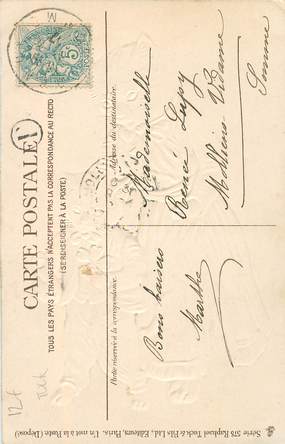 CARTE POSTALE
TOUS LES PAYS ÉTRANGERS N'ACCEPTENT PAS LA CORRESPONDANCE AU RECTO
(SE RENSEIGNER À LA POSTE)
Partie réservée à la correspondance.
Adresse du destinataire.
Bons baisers
Marthe
Mademoiselle
Renée
Molliens Vidame
Somme
Série 575 Raphael Tuck & Fils Ltd., Editeurs, Paris. Un mot à la Poste (Déposé)
12f
Tuck
5c